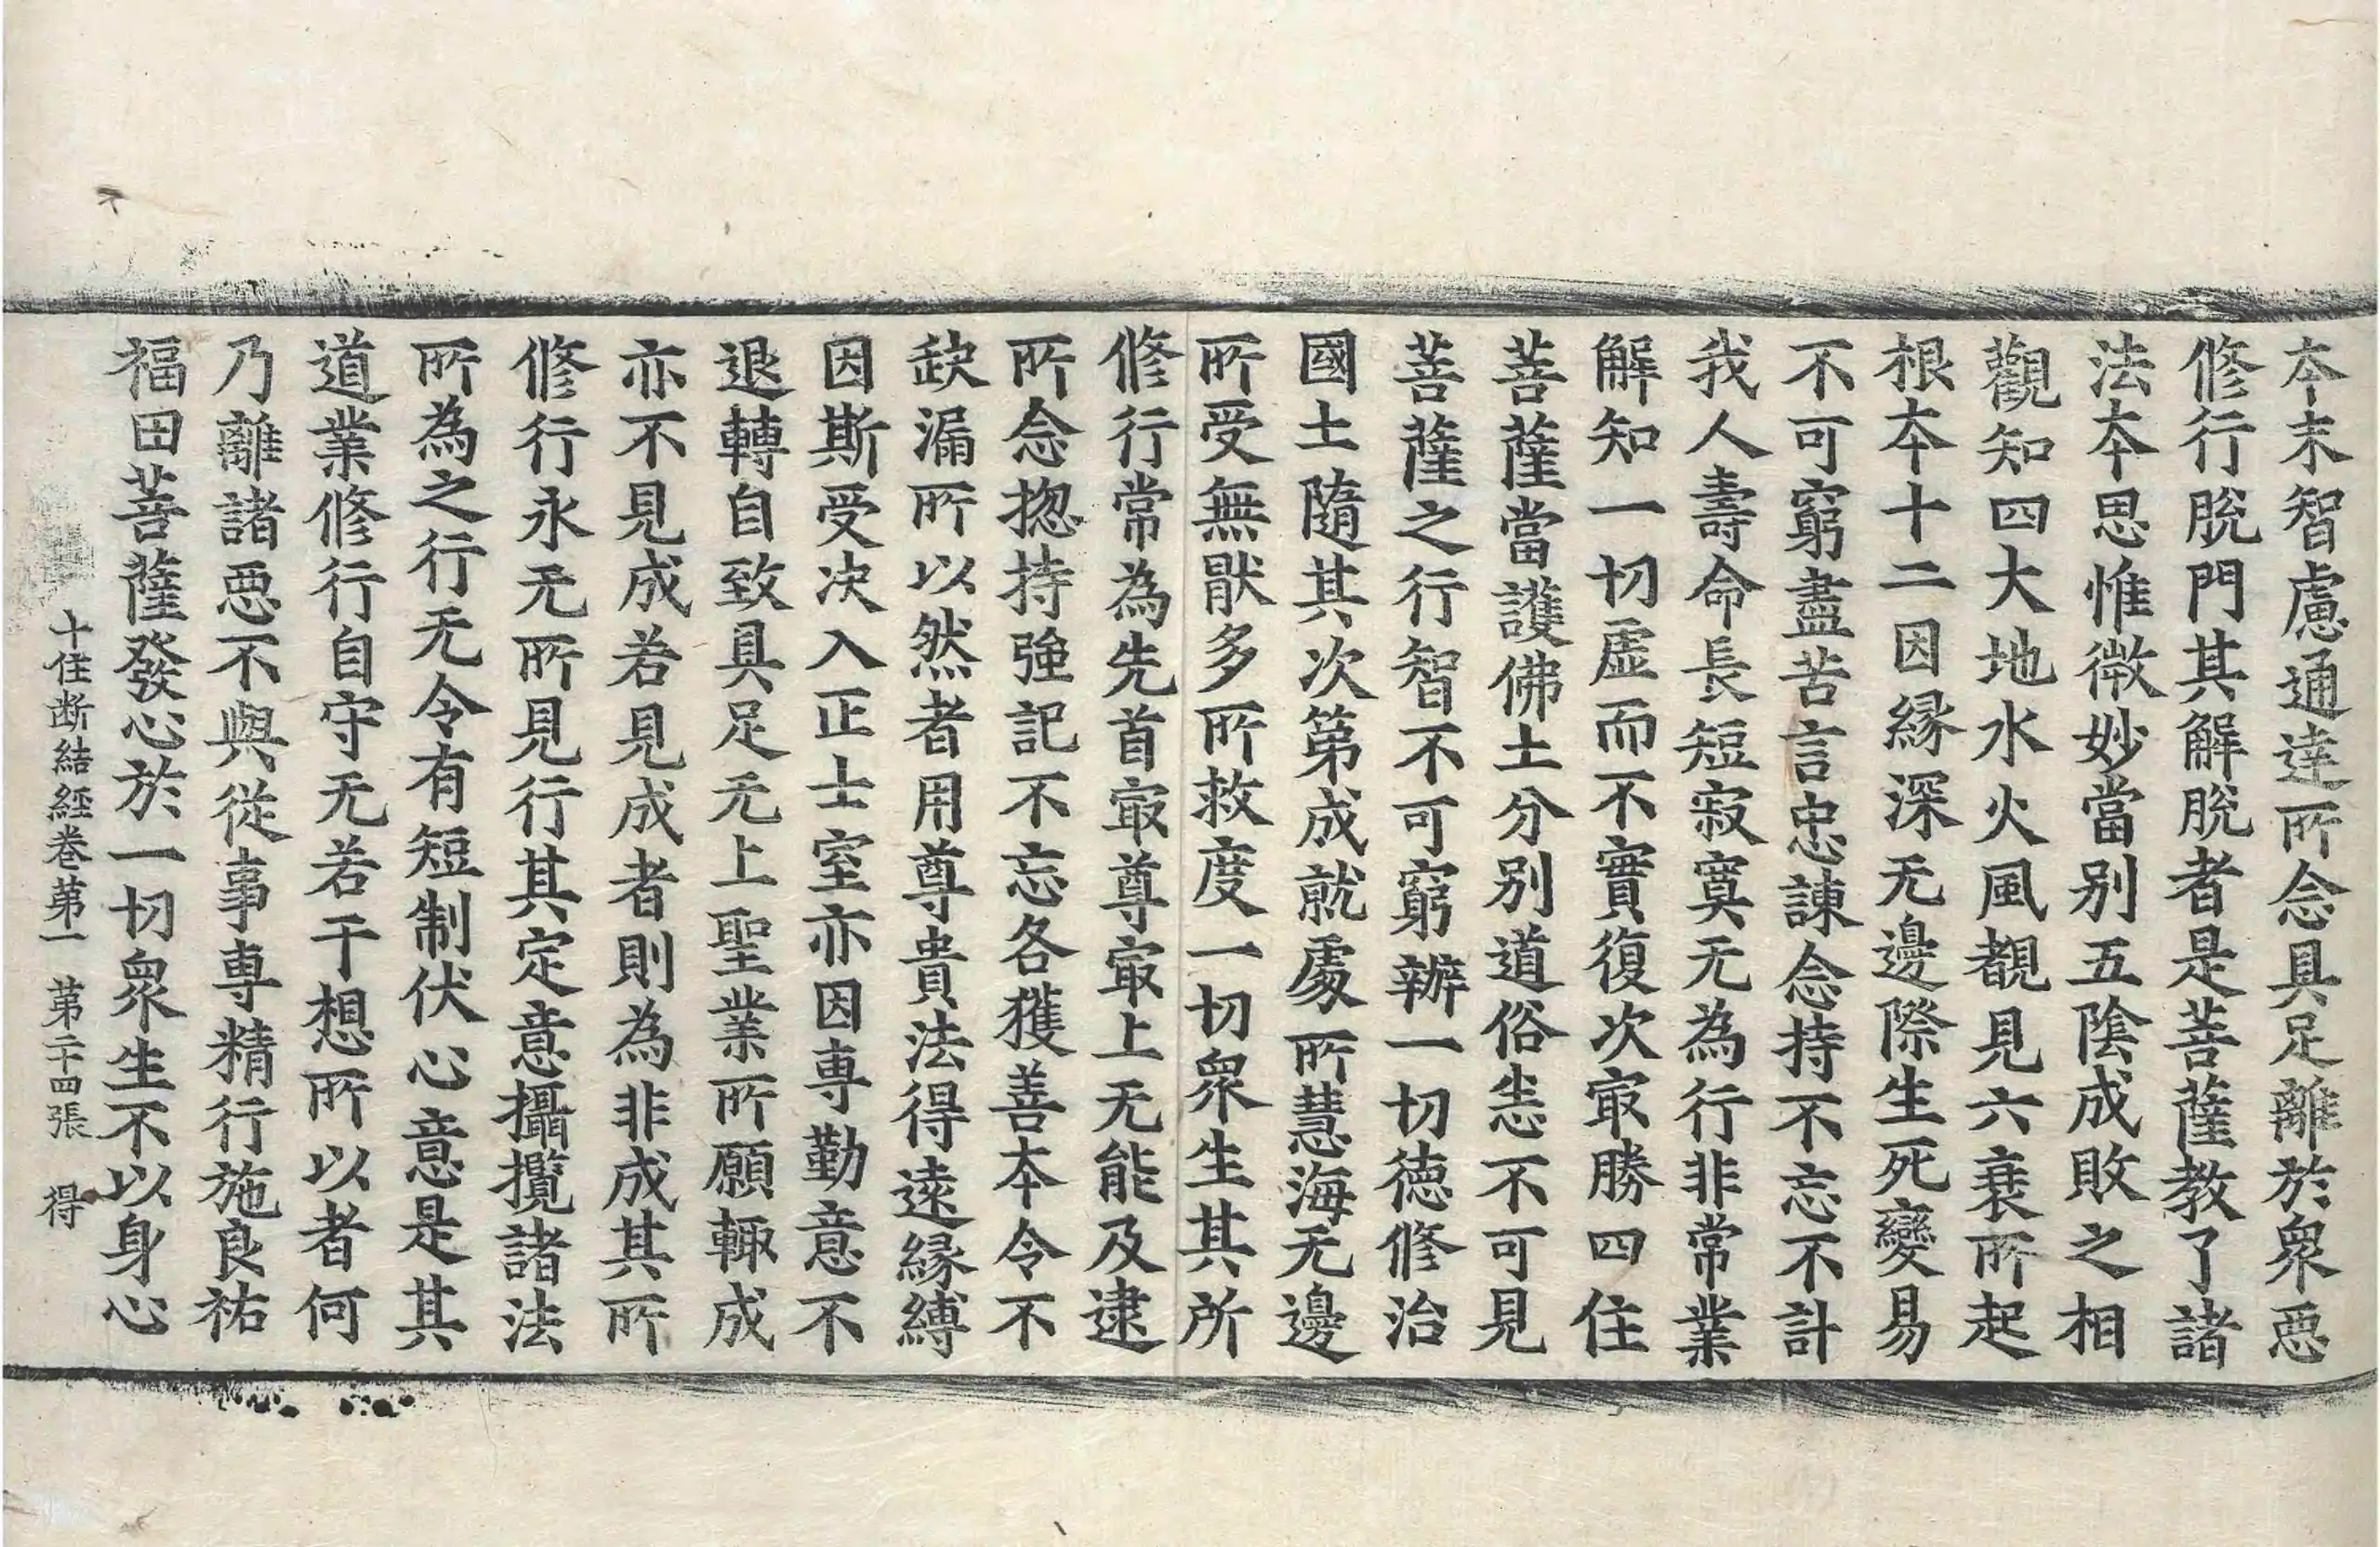 夲末智慮通達所念具足離於衆惡
修行脫門其解脫者是菩薩教了諸
法夲思惟微妙當別五陰成敗之相
觀知四大地水火風覩見六衰所起
根夲十二因緣深无邊際生死變易
不可窮盡苦言忠諫念持不忘不計
我人壽命長短寂寞无為行非常業
解知一切虛而不實復次㝡勝四住
菩薩當護佛土分別道俗恙不可見
菩薩之行智不可窮辦一切德修治
國土隨其次第成就處所慧海无邊
所受無猒多所救度一切衆生其所
修行常為先首㝡尊㝡上无能及逮
所念揔持強記不忘各獲善夲令不
缺漏所以然者用尊貴法得遠緣縛
因斯受决入正士室亦因專勤意不
退轉自致具足无上聖業所願輙成
亦不見成若見成者則為非成其所
修行永无所見行其定意攝攬諸法
所為之行无令有短制伏心意是其
道業修行自守无若干想所以者何
乃離諸惡不與從事專精行施良祐
福田菩薩發心於一切衆生不以身心
十住断結經卷第一 第二十四張 得